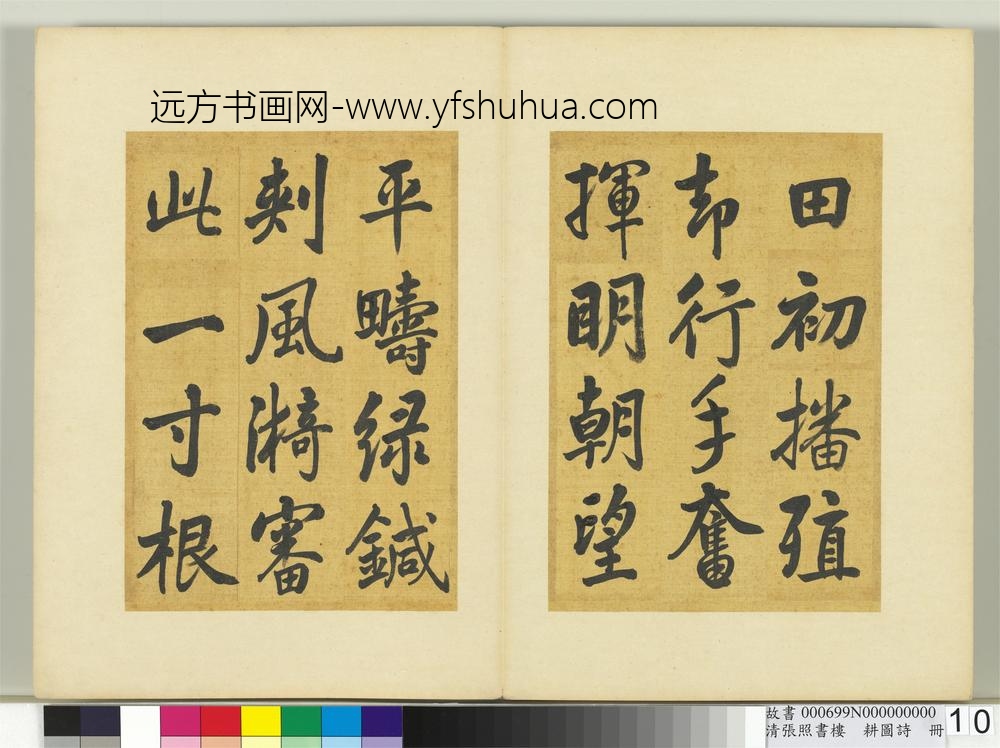 远方书画网-www.yfshuhua.com
田初播殖
却行手奮
揮明朝望
平疇緑鍼
刾風漪審
此一寸根
故書 000699N000000000
清張照書樓　耕圖詩　冊
10